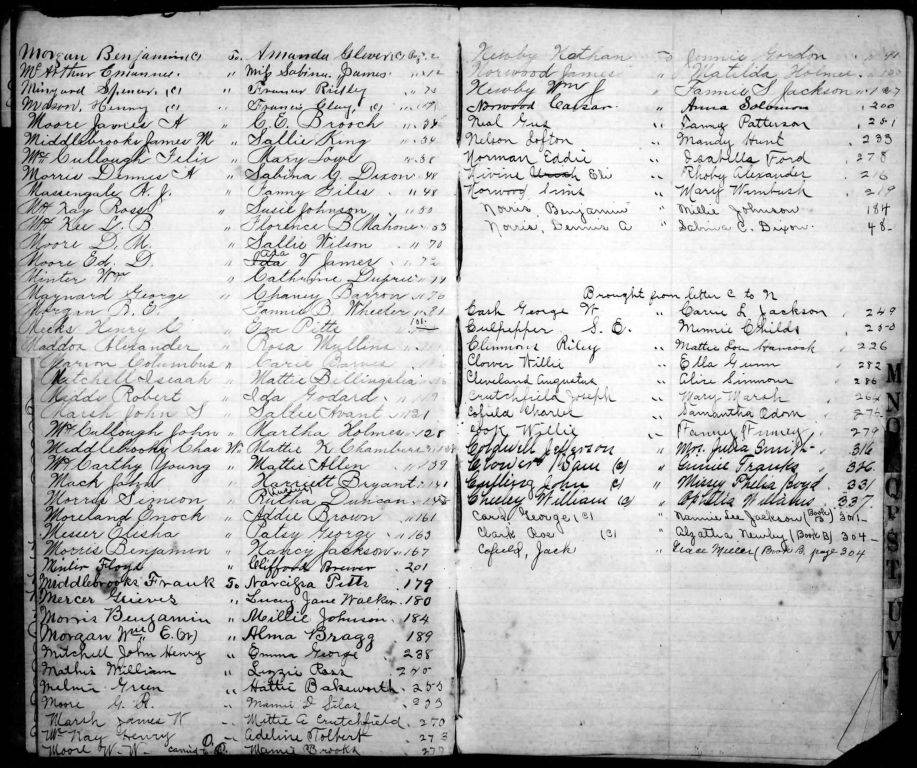 Morgan Benjamin (c) To Amanda Glover (c) Pg. 2
McArthur Emanuel " Miss Sabina James " 12
Mingard Spencer (c) " Frances Ridley
Mason, Henry (c) " Francis Clay (c)
Moore James A " C. E. Brooch " 38
Middlebrooks James M " Sallie King " 34
McCullough Felix " Mary Lowe " 38
Morris Dennis A " Sabina C. Dixon " 48
Massengale H. J. " Fanny Giles " 48
McKay Ross " Susie Johnson " 50
McKee L. B. " Florence B Mahone " 53
Moore D. M. " Sallie Wilson " 70
Moore Ed. D. " Ada V James " 72
Minter Wm " Catharine Dupree " 74
Maynard George " Chaney Barron " 76
Morgan B. E. " Fannie B Wheeler " 81
Meeks Henry C " Geo Pitts 101
Maddox Alexander " Rosa Mullins
Marion Columbus " Carie Barnes
Mitchell Isaiah " Mattie Billingslea
Middy Robert " Ida Godard
Marsh John S " Sallie Avant " 121
McCullough John " Martha Holmes " 128
Middlebrooks Chas W. " Mattie K Chambers
McCarthy Young " Mattie Allen " 139
Mack John " Harriett Bryant " 141
Morris Simeon " Duncan
Moreland Enock " Addie Brown " 161
Messer Elisha " Patsy George " 163
Morris Benjamin " Nancy Jackson " 167
Minter Floyd " Clifford Brewer 201
Middlebrooks Frank To Narcissa Pitts 179
Mercer Grieves " Lucy Jane Walker 180
Morris Benjamin " Millie Johnson 184
Morgan Wm E. (W) " Alma Bragg 189
Mitchell John Henry " Emma George 238
Mathis William " Lizzie Ross 240
Melmie Green " Hattie Bakeworth 253
Moore G. R. " Mamie I Silas 233
Marsh James W " Mattie A Crutchfield 270
McKay Henry " Adeline Tolbert 273
Moore W. W. carried to O. " Mamie Brooks 277
Newby Nathan To Jennie Gordon 41
Norwood James " Matilda Holmes
Newby Wm J " Fannie S Jackson " 127
Norwood Caesar " Anna Solomon 200
Neal Gus " Fanny Patterson 251
Nelson Lofton " Mandy Hunt 233
Norman Eddie " Isabella Ford 278
Nivins Eli " Rhoby Alexander 216
Norwood Sims " Mary Wimbush 219
Norris, Benjamin " Millie Johnson 184
Norris, Dennis A " Sabina C. Dixon 48
Brought from letter C to N
Cash George W " Carie L Jackson 249
Culpepper S. E. " Minnie Childs 250
Clemmons Riley " Mattie Lou Hancock 226
Clover Willie " Ella Gunn 282
Cleveland Augustus " Alice Simmons 286
Crutchfield Joseph " Mary Marsh 264
Cofield Charlie " Samantha Odom 272
Cook Willie " Fanny Finney 279
Coldwell Jefferson " Mrs. Julia Smith 316
Clower Dave (c) " Gussie Franks 326
Cufling John (c) " Missey Phelia Boyd 331
Cheeley William (c) " Ophelia Williams 337
Card George, (c) Nannie Lee Jackson (Book B) 301
Clark Roe (c) Algatha Newby (Book B) 304
Cofield, Jack Grace Miller (Book B, page 304
M
N
O
Q
P
S
T
U
V